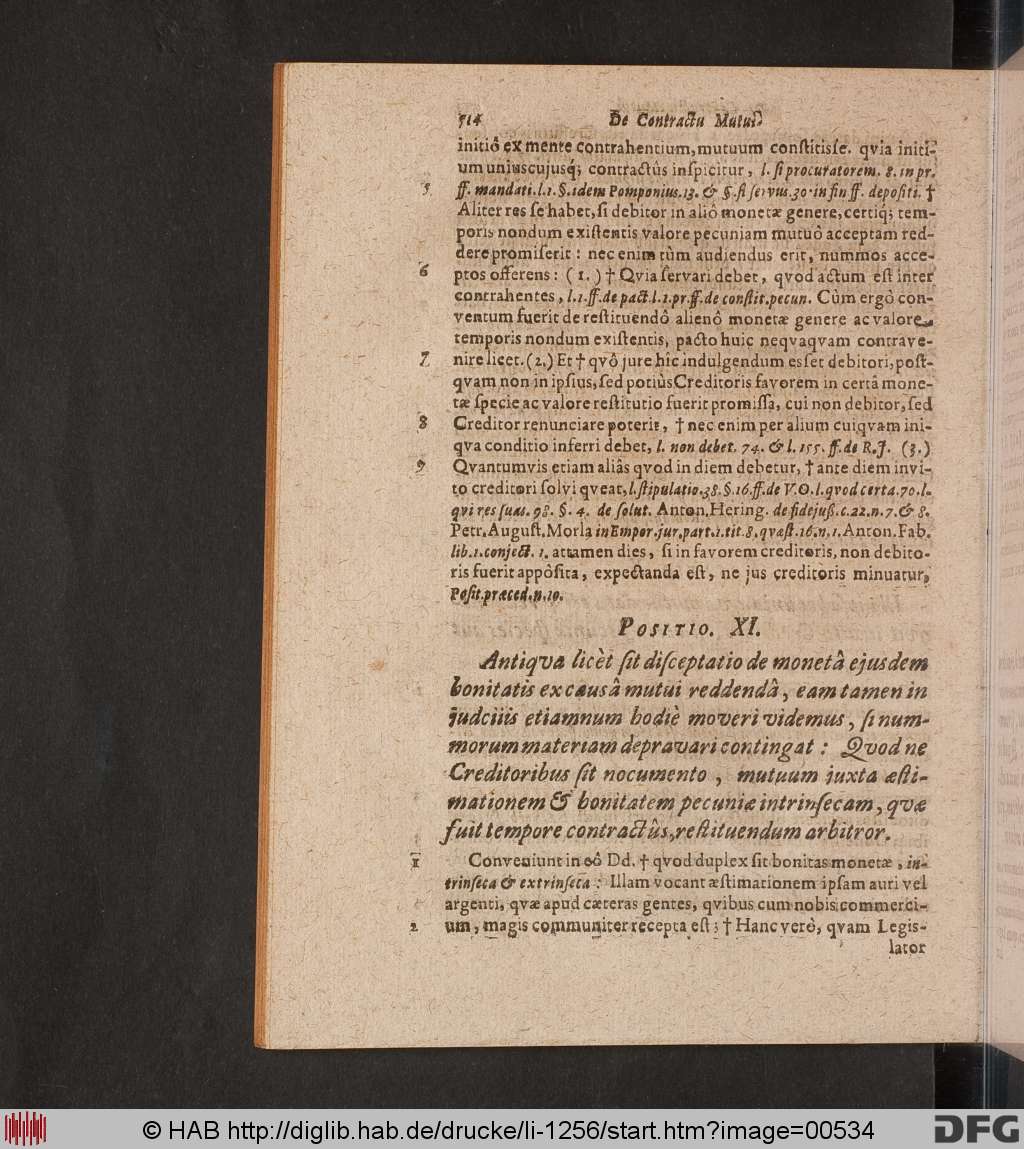 514 De Contractu Mutui
initiô ex mente contrahentium, mutuum constitisse. qvia initi-
um uniuscujusq; contractûs inspicitur, l. si procuratorem. 8. in pr.
5. ff. mandati. l. 1. §. idem Pomponius. 13. & §. si servus. 30. in fin ff. depositi. †
Aliter res se habet, si debitor in aliô monetæ genere, certiq; tem-
poris nondum existentis valore pecuniam mutuô acceptam red-
dere promiserit : nec enim tùm audiendus erit, nummos acce-
6 ptos offerens : ( 1. ) † Qvia servari debet, qvod actum est inter
contrahentes, l. 1. ff. de pact. l. 1. pr. ff. de constit. pecun. Cùm ergò con-
ventum fuerit de restituendô alienô monetæ genere ac valore
temporis nondum existentis, pacto huic neqvaqvam contrave-
7. nire licet. (2.) Et † qvô jure hîc indulgendum esset debitori, post-
qvam non in ipsius, sed potiùs Creditoris favorem in certâ mone-
tæ specie ac valore restitutio fuerit promissa, cui non debitor, sed
8 Creditor renunciare poterit, † nec enim per alium cuiqvam ini-
qva conditio inferri debet, l. non debet. 74. & l. 155. ff. de R. J. (3.)
9 Qvantumvis etiam aliâs qvod in diem debetur, † ante diem invi-
to creditori solvi qveat, l. stipulatio. 38. §. 16. ff. de V. O. l. qvod certa. 70. l.
qvi res suas. 98. §. 4. de solut. Anton. Hering. de fidejuß. c. 22. n. 7. & 8.
Petr. August. Morla in Empor. jur. part. 1. tit. 8. qvæst. 16. n. 1. Anton. Fab.
lib. 1. conject. 1. attamen dies, si in favorem creditoris, non debito-
ris fuerit appôsita, expectanda est, ne jus creditoris minuatur,
Posit. præced. n. 10.
POSITIO. XI.
Antiqva licèt sit disceptatio de monetâ ejusdem
bonitatis ex causâ mutui reddendâ, eam tamen in
judciiis etiamnum hodiè moveri videmus, si num-
morum materiam depravari contingat : Qvod ne
Creditoribus sit nocumento, mutuum juxta æsti-
mationem & bonitatem pecuniæ intrinsecam, qvæ
fuit tempore contractûs, restituendum arbitror.
1 Conveniunt in eô Dd. † qvod duplex sit bonitas monetæ, in-
trinseca & extrinseca : Illam vocant æstimationem ipsam auri vel
argenti, qvæ apud cæteras gentes, qvibus cum nobis commerci-
2 um, magis communiter recepta est ; † Hanc verò, qvam Legis-
lator
© HAB http://diglib.hab.de/drucke/li-1256/start.htm?image=00534
DFG